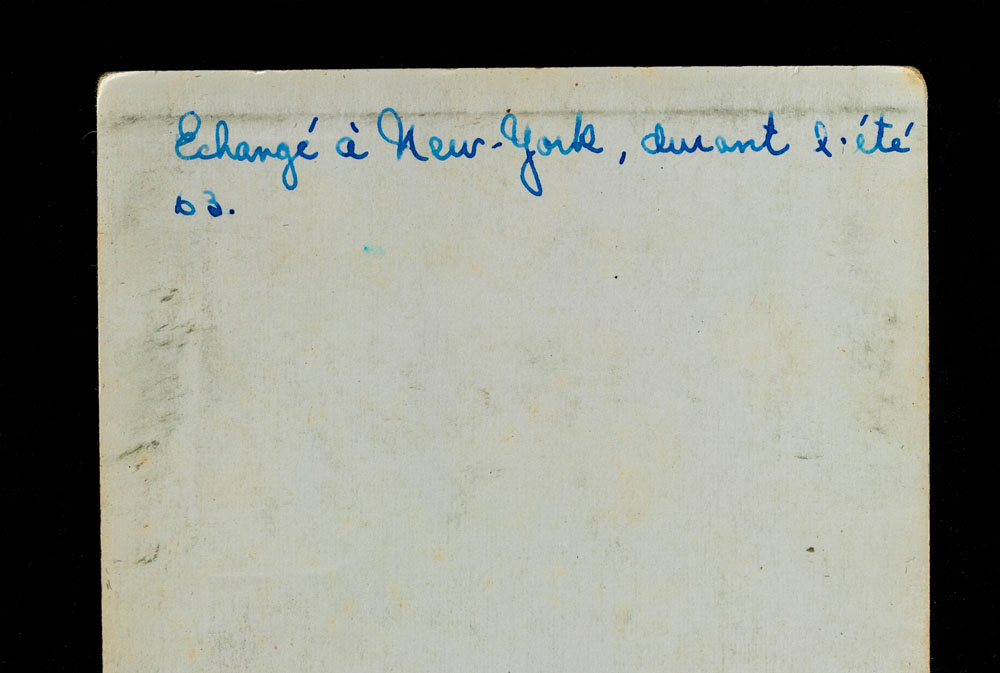 Echangé à New-York, durant l'été
53.